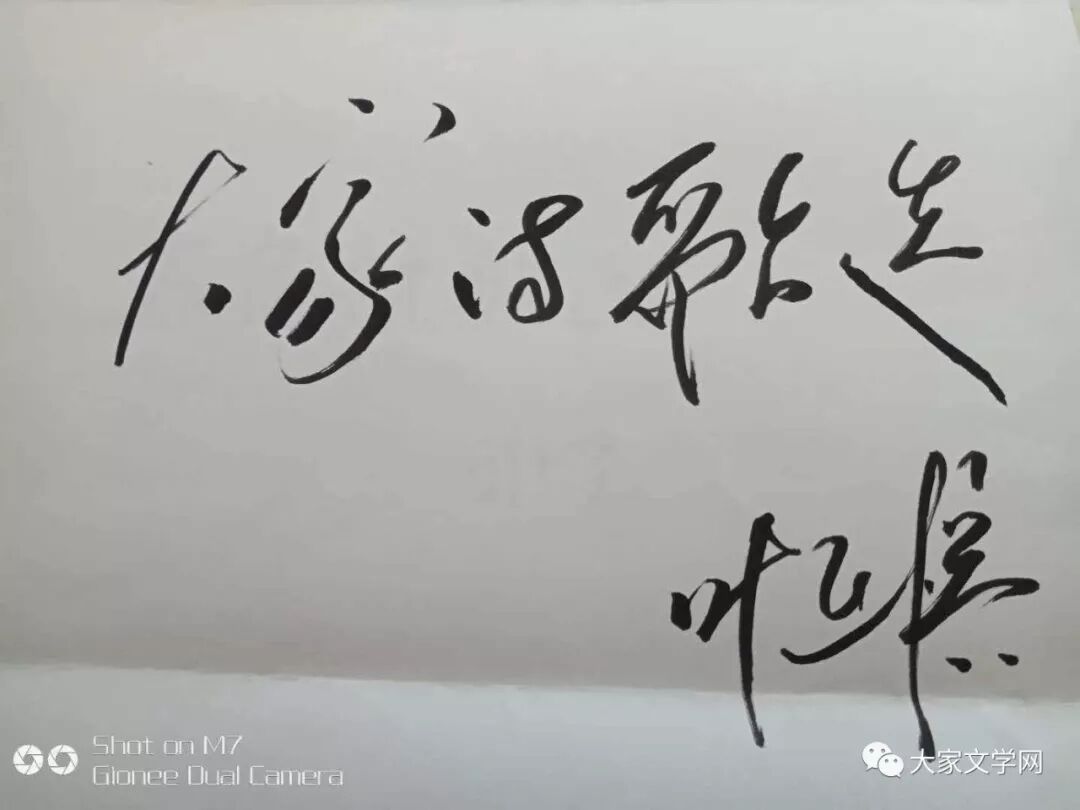 大家诗歌选
叶
Shot on M7
Gionee Dual Camera
大家文学网